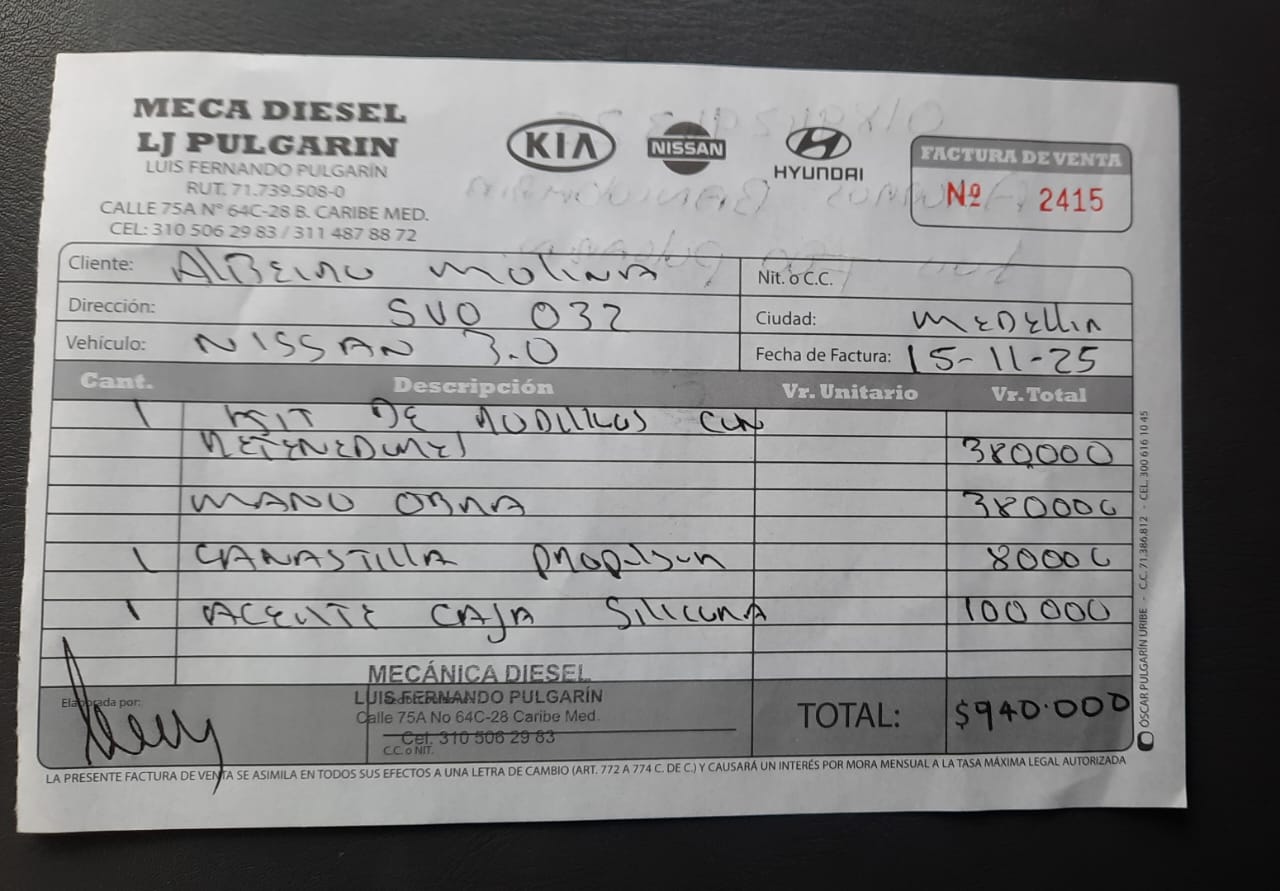 MECA DIESEL
LJ PULGARIN
LUIS FERNANDO PULGARÍN
RUT. 71.739.508-0
CALLE 75A Nº 64C-28 B. CARIBE MED.
CEL: 310 506 29 83 / 311 487 88 72
KIA
NISSAN
HYUNDAI
FACTURA DE VENTA
Nº 2415
Cliente: AlBeiro Molina
Nit. o C.C.
Dirección: SVO 032
Ciudad: MEDEllin
Vehículo: NISSAN 3.0
Fecha de Factura: 15-11-25
Cant. Descripción Vr. Unitario Vr. Total
1 KIT DE RODILLOS CON
RETENEDORES 380,000
MANO OBRA 380000
1 CANASTILLA 80000
1 ACEITE CAJA SILICONA 100 000
Elaborada por:
MECÁNICA DIESEL
LUIS FERNANDO PULGARÍN
Calle 75A No 64C-28 Caribe Med.
Cel. 310 506 29 83
C.C. o NIT.
TOTAL: $940.000
LA PRESENTE FACTURA DE VENTA SE ASIMILA EN TODOS SUS EFECTOS A UNA LETRA DE CAMBIO (ART. 772 A 774 C. DE C.) Y CAUSARÁ UN INTERÉS POR MORA MENSUAL A LA TASA MÁXIMA LEGAL AUTORIZADA
ÓSCAR PULGARÍN URIBE - C.C. 71.386.812 - CEL. 300 616 10 45